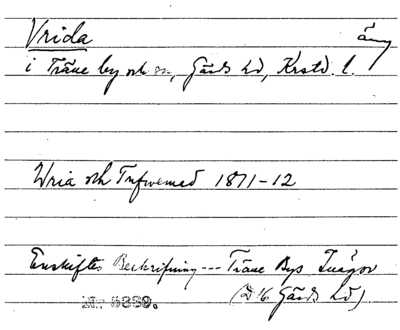 Vrida äng
i Träne by och sn, Gärds hd, Krstd. l.
Wria och Tufwemad 1811-12
Enskiftes Beskrifning --- Träne Bys Inägor
(D 16 Gärds hd)
Nr. 5339.